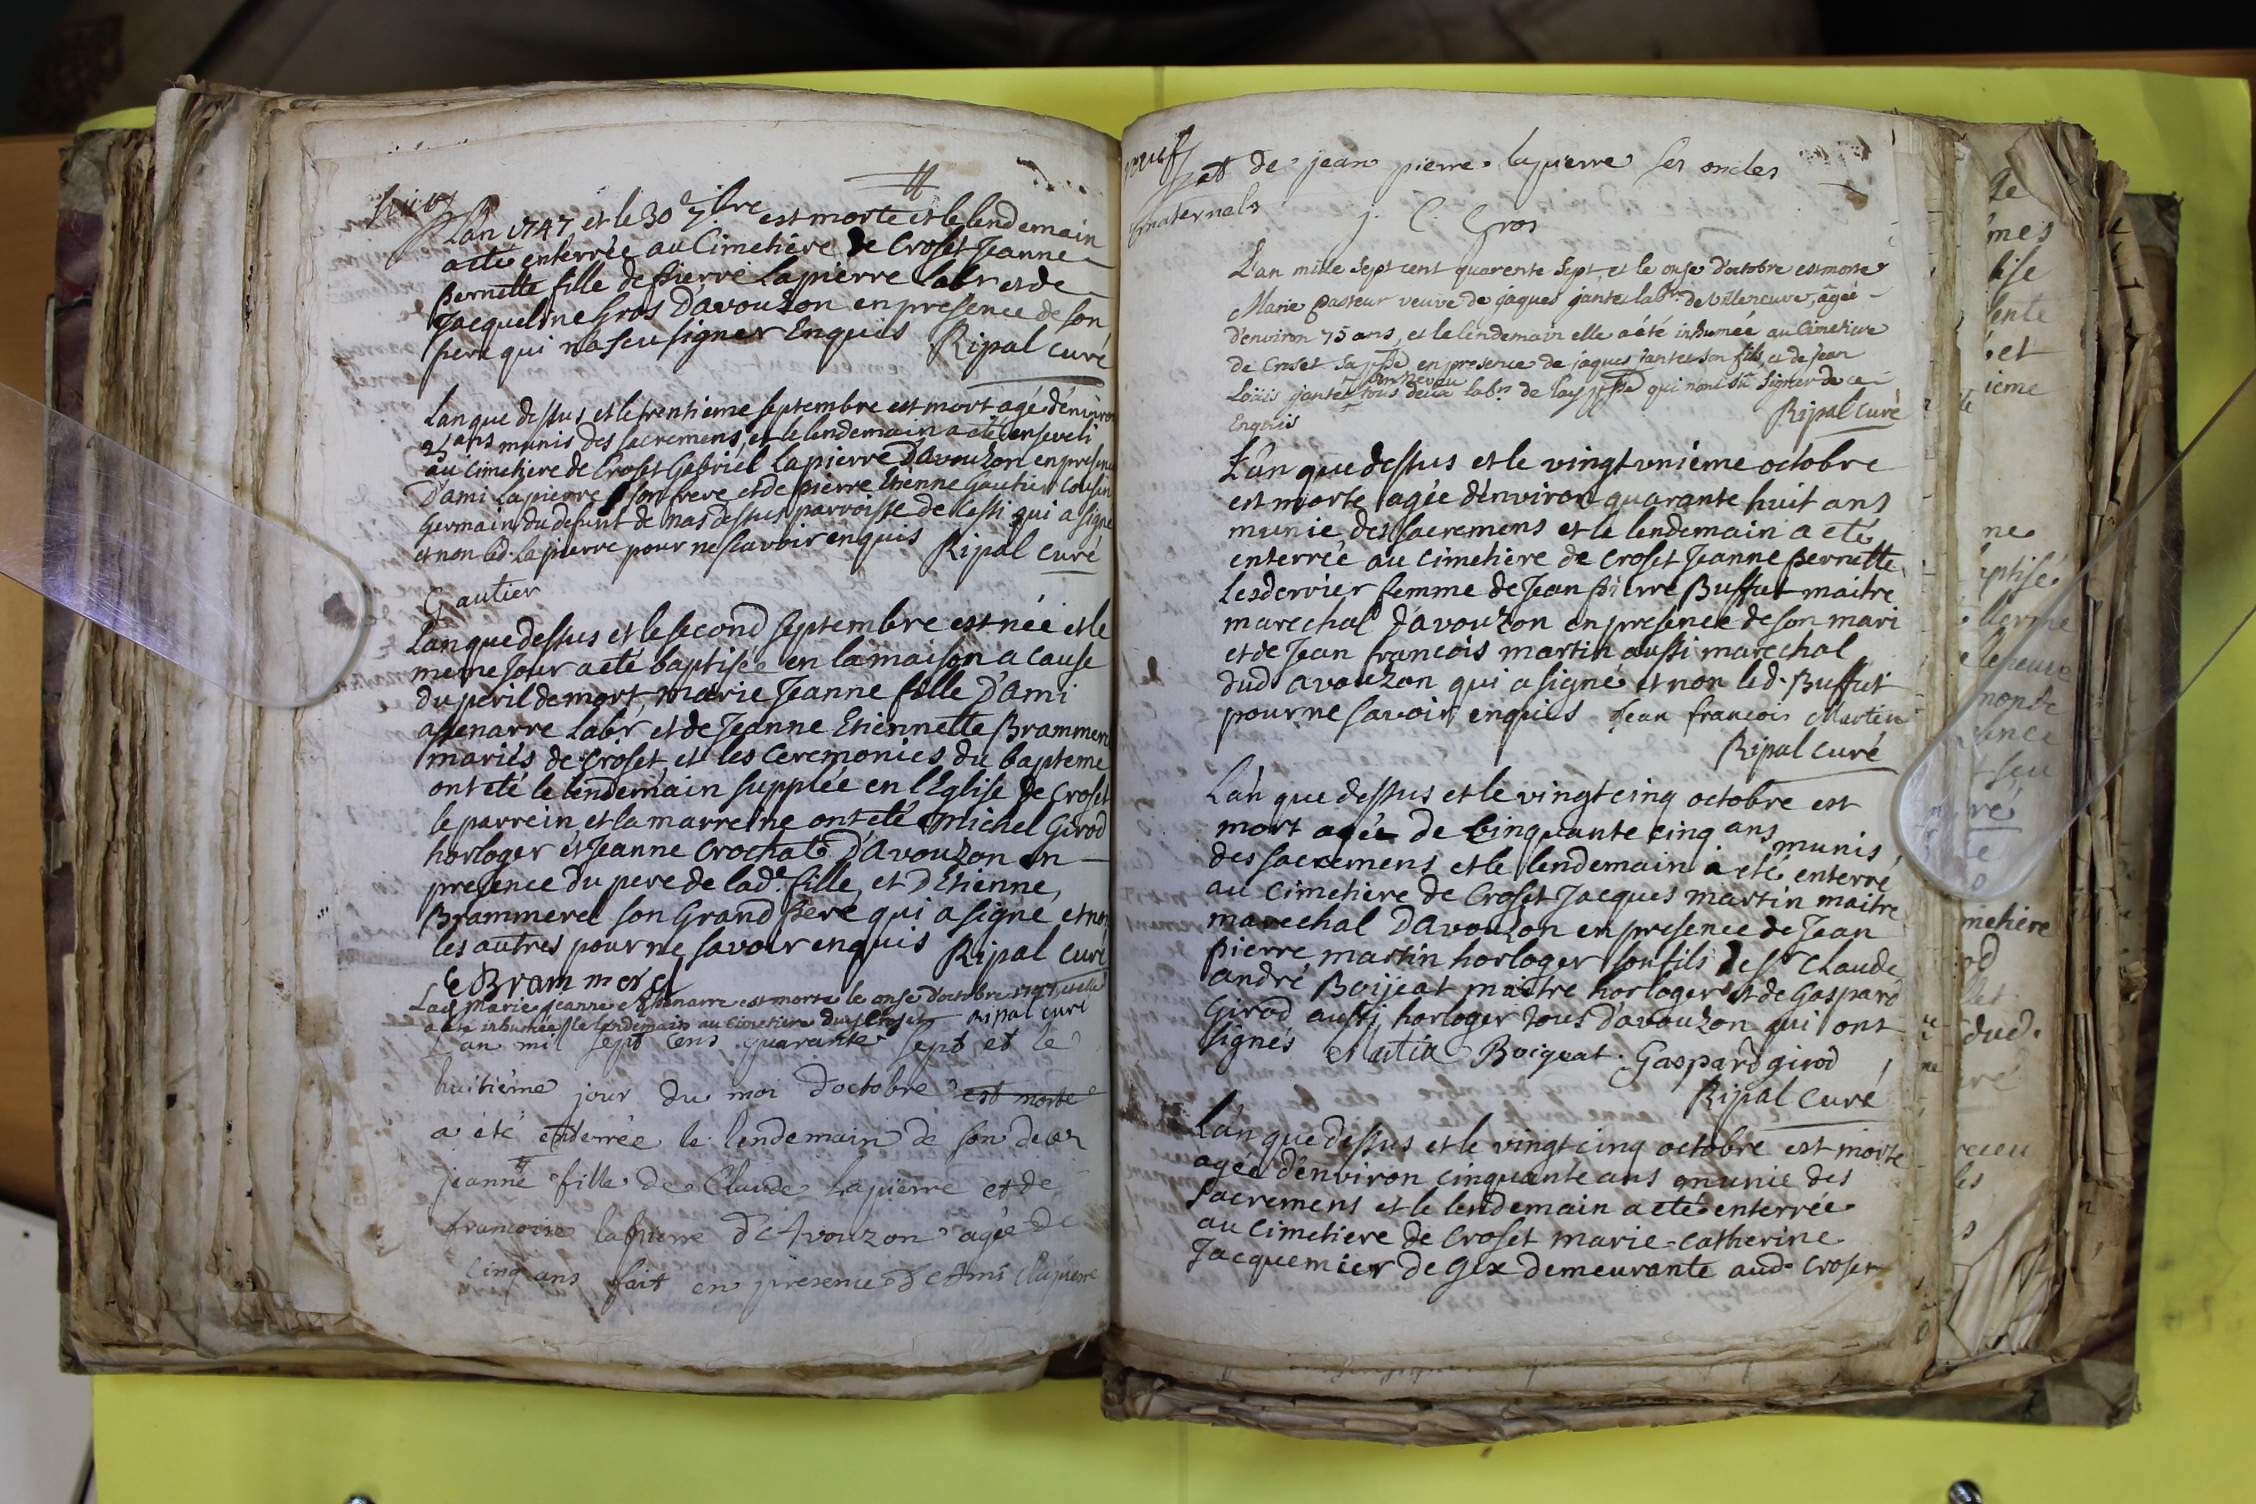 huit
Lan 1747 et le 30 7bre est morte et le lendemain
a eté enterrée au Cimetiere de Croset Jeanne
Pernette fille de Pierre Lapierre labr et de
Jacqueline Gros D'avouzon en presence de son
pere qui na seu signer Enquis Ripal curé
Lan que dessus et le trentieme septembre est mort agé d'environ
25 ans munis des sacremens, et le lendemain a eté enseveli
au cimetiere de Croset Gabriel Lapierre D'avouzon en presence
D'ami Lapierre son frere et de pierre Etienne Gautier Cousin
Germain du defunt de nas dessus parroisse de Lessi qui a signé
et non led. Lapierre pour ne scavoir enquis Ripal curé
Gautier
Lan que dessus et le second septembre est née et le
meme Jour a eté baptisée en la maison a cause
du peril de mort marie Jeanne fille D'ami
Labr et de Jeanne Etiennette Brammerel
mariés de Croset et les Ceremonies du bapteme
ont eté le lendemain supplée en l'Eglise de Croset
le parrein et la marreine ont eté Michel Girod
horloger et Jeanne Crochat D'avouzon en
presence du pere de lade. fille, et D'Etienne
Brammerel son Grand pere qui a signé et non
les autres pour ne savoir enquis Ripal curé
e Brammerel
Lad. Marie Jeanne est morte le onse d'octobre 1747, et elle
a eté inhumée le lendemain au cimetiere dud. Croset Ripal curé
L'an mil sept cens quarante sept et le
huitiéme jour du moi d'octobre est morte
a été enterrée le lendemain de son decez
jeanne fille de Claude Lapierre et de
francoise lapierre D'Avouzon agée de
cinq ans fait en presence D'Ami Lapierre
neuf
et de jean pierre lapierre ses oncles
maternels
j. C. Gros
L'an mille sept cent quarente sept et le onse d'octobre est morte
Marie Pasteur veuve de jaques jantet labr. de Villeneuve, âgée
d'environ 75 ans, et le lendemain elle a été inhumée au Cimetiere
de Croset sa psse en presence de jaques jantet son fils, et de jean
son neveu
Loüis jantet tous deux labrs de lad. psse qui n'ont sû signer de ce
Enquis Ripal Curé
L'an que dessus et le vingt unième octobre
est morte agée d'environ quarante huit ans
munie des sacremens et le lendemain a eté
enterrée au cimetiere de Croset Jeanne Pernette
Lesdernier femme de Jean Pierre Buffut maitre
marechal d'avouzon en presence de son mari
et de Jean francois martin aussi marechal
dud avouzon qui a signé et non led. Buffut
pour ne savoir enquis Jean francois Martin
Ripal curé
L'an que dessus et le vingt cinq octobre est
mort agée de Cinquante cinq ans munis
des sacremens et le lendemain a eté enterré
au Cimetiere de Croset Jacques martin maitre
marechal D'avouzon en presence de Jean
pierre martin horloger son fils de Sr Claude
andré Boijeat maitre horloger et de Gaspard
Girod aussi horloger tous d'avouzon qui ont
signés Martin Boijeat Gaspard girod
Ripal curé
L'an que dessus et le vingt cinq octobre est morte
agée d'environ cinquante ans munie des
sacremens et le lendemain a eté enterrée
au Cimetiere de Croset marie-catherine
Jacquemier de Gex demeurante aud. Croset